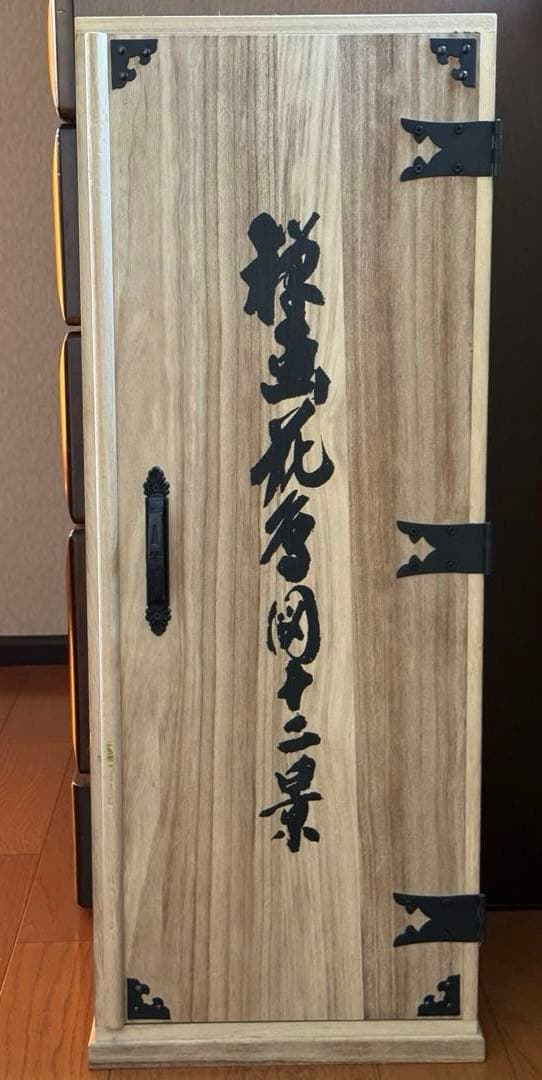 禅画花鳥図十二景